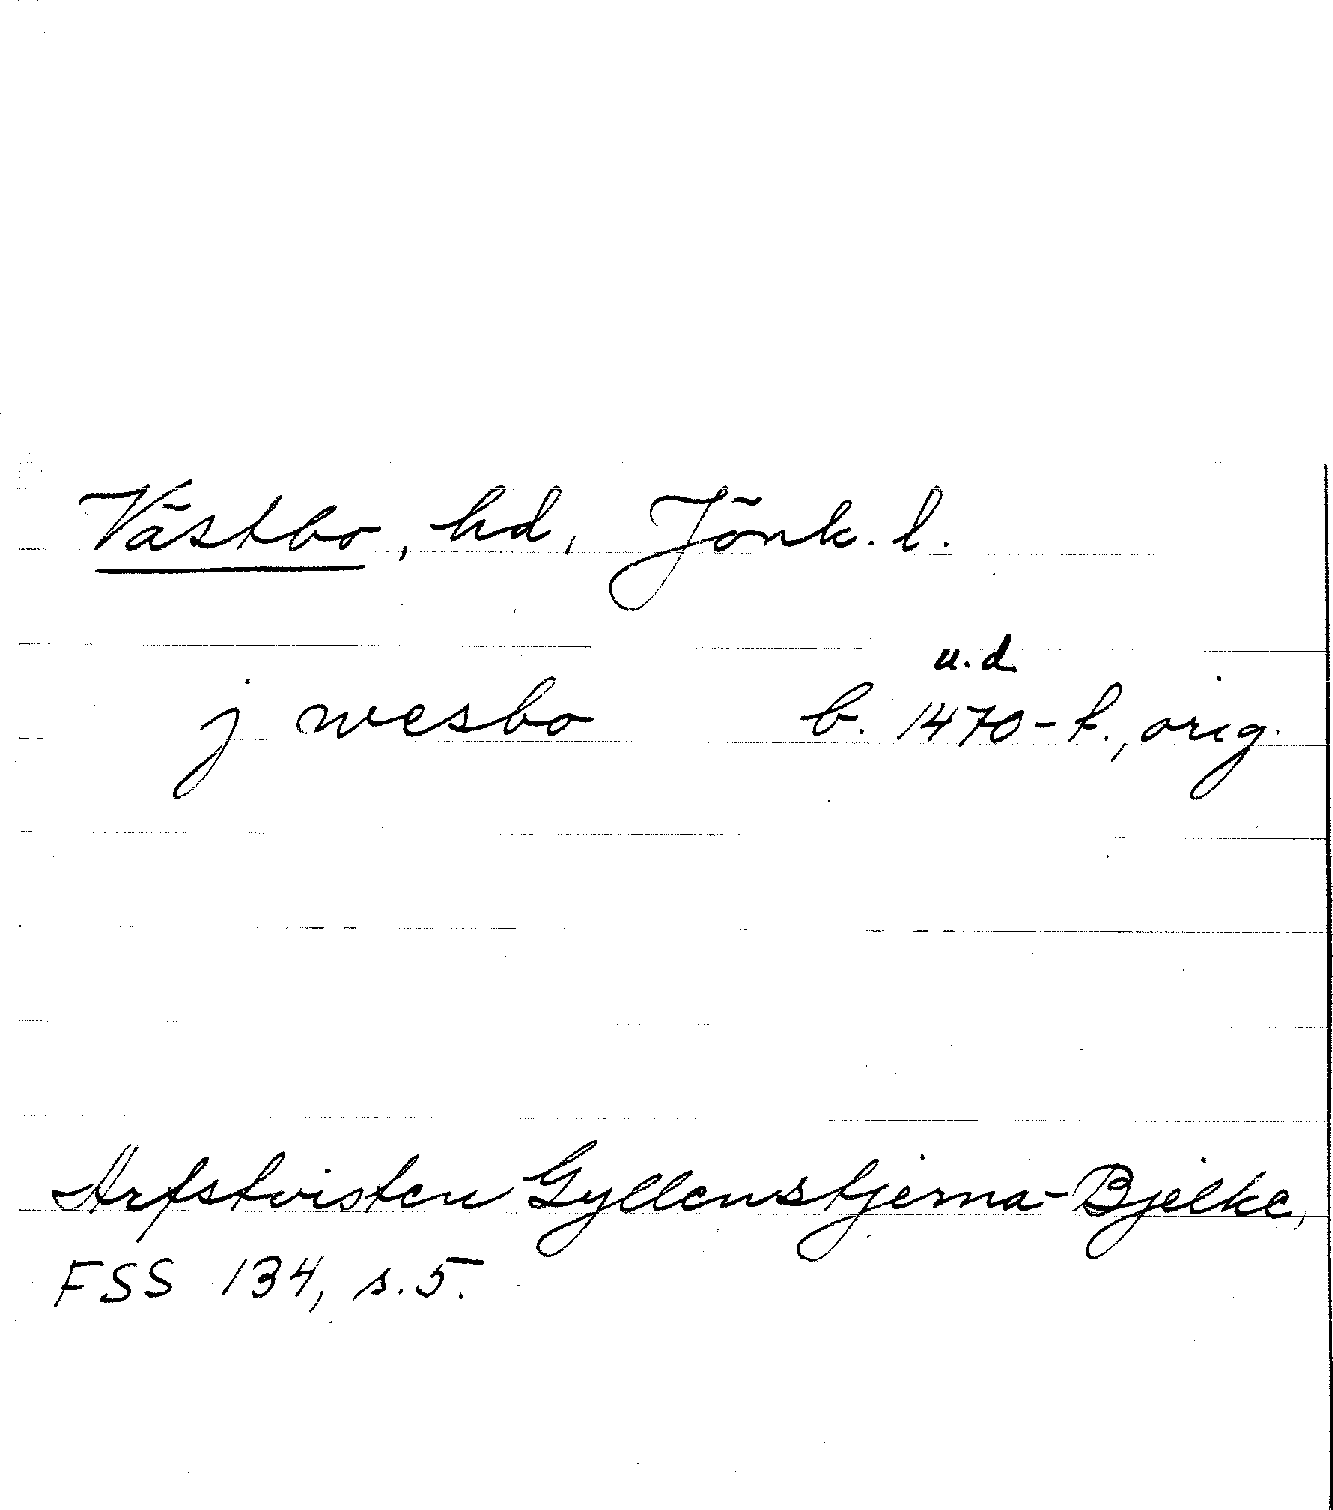 Västbo, hd, Jönk. l.
u.d
j wesbo b. 1470-t., orig.
Arfstvisten Gyllenstjerna-Bjelke,
FSS 134, s.5.